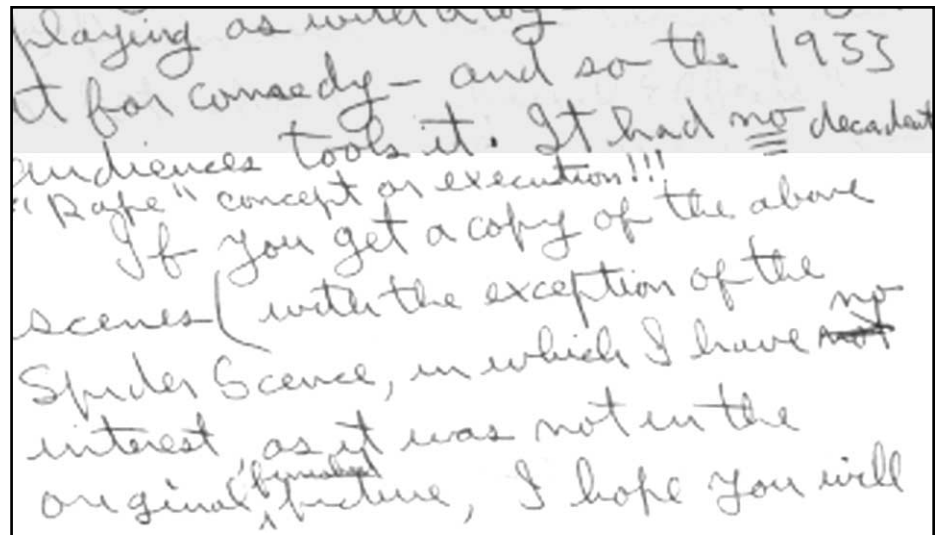 playing as with a toy -
t for comsedy - and so the 1933
audiences tools it. It had no decadent
"Rape" concept or execution!!!
If you get a copy of the above
scenes (with the exception of the
Spider Scence, in which I have not no
interest, as it was not in the
original, finished picture, I hope you will